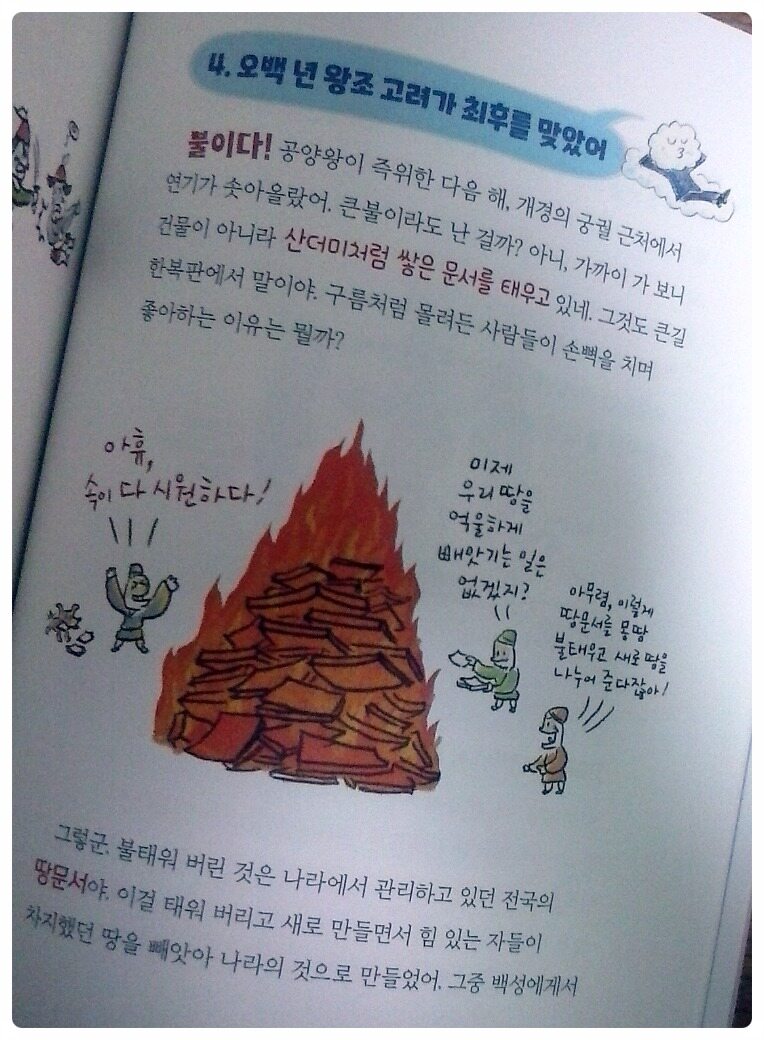 4. 오백 년 왕조 고려가 최후를 맞았어
불이다! 공양왕이 즉위한 다음 해, 개경의 궁궐 근처에서
연기가 솟아올랐어. 큰불이라도 난 걸까? 아니, 가까이 가 보니
건물이 아니라 산더미처럼 쌓은 문서를 태우고 있네. 그것도 큰길
한복판에서 말이야. 구름처럼 몰려든 사람들이 손뼉을 치며
좋아하는 이유는 뭘까?
아휴,
속이 다 시원하다!
이제
우리 땅을
억울하게
빼앗기는 일은
없겠지?
아무렴, 이렇게
땅문서를 몽땅
불태우고 새로 땅을
나누어 준다잖아!
그렇군. 불태워 버린 것은 나라에서 관리하고 있던 전국의
땅문서야. 이걸 태워 버리고 새로 만들면서 힘 있는 자들이
차지했던 땅을 빼앗아 나라의 것으로 만들었어. 그중 백성에게서